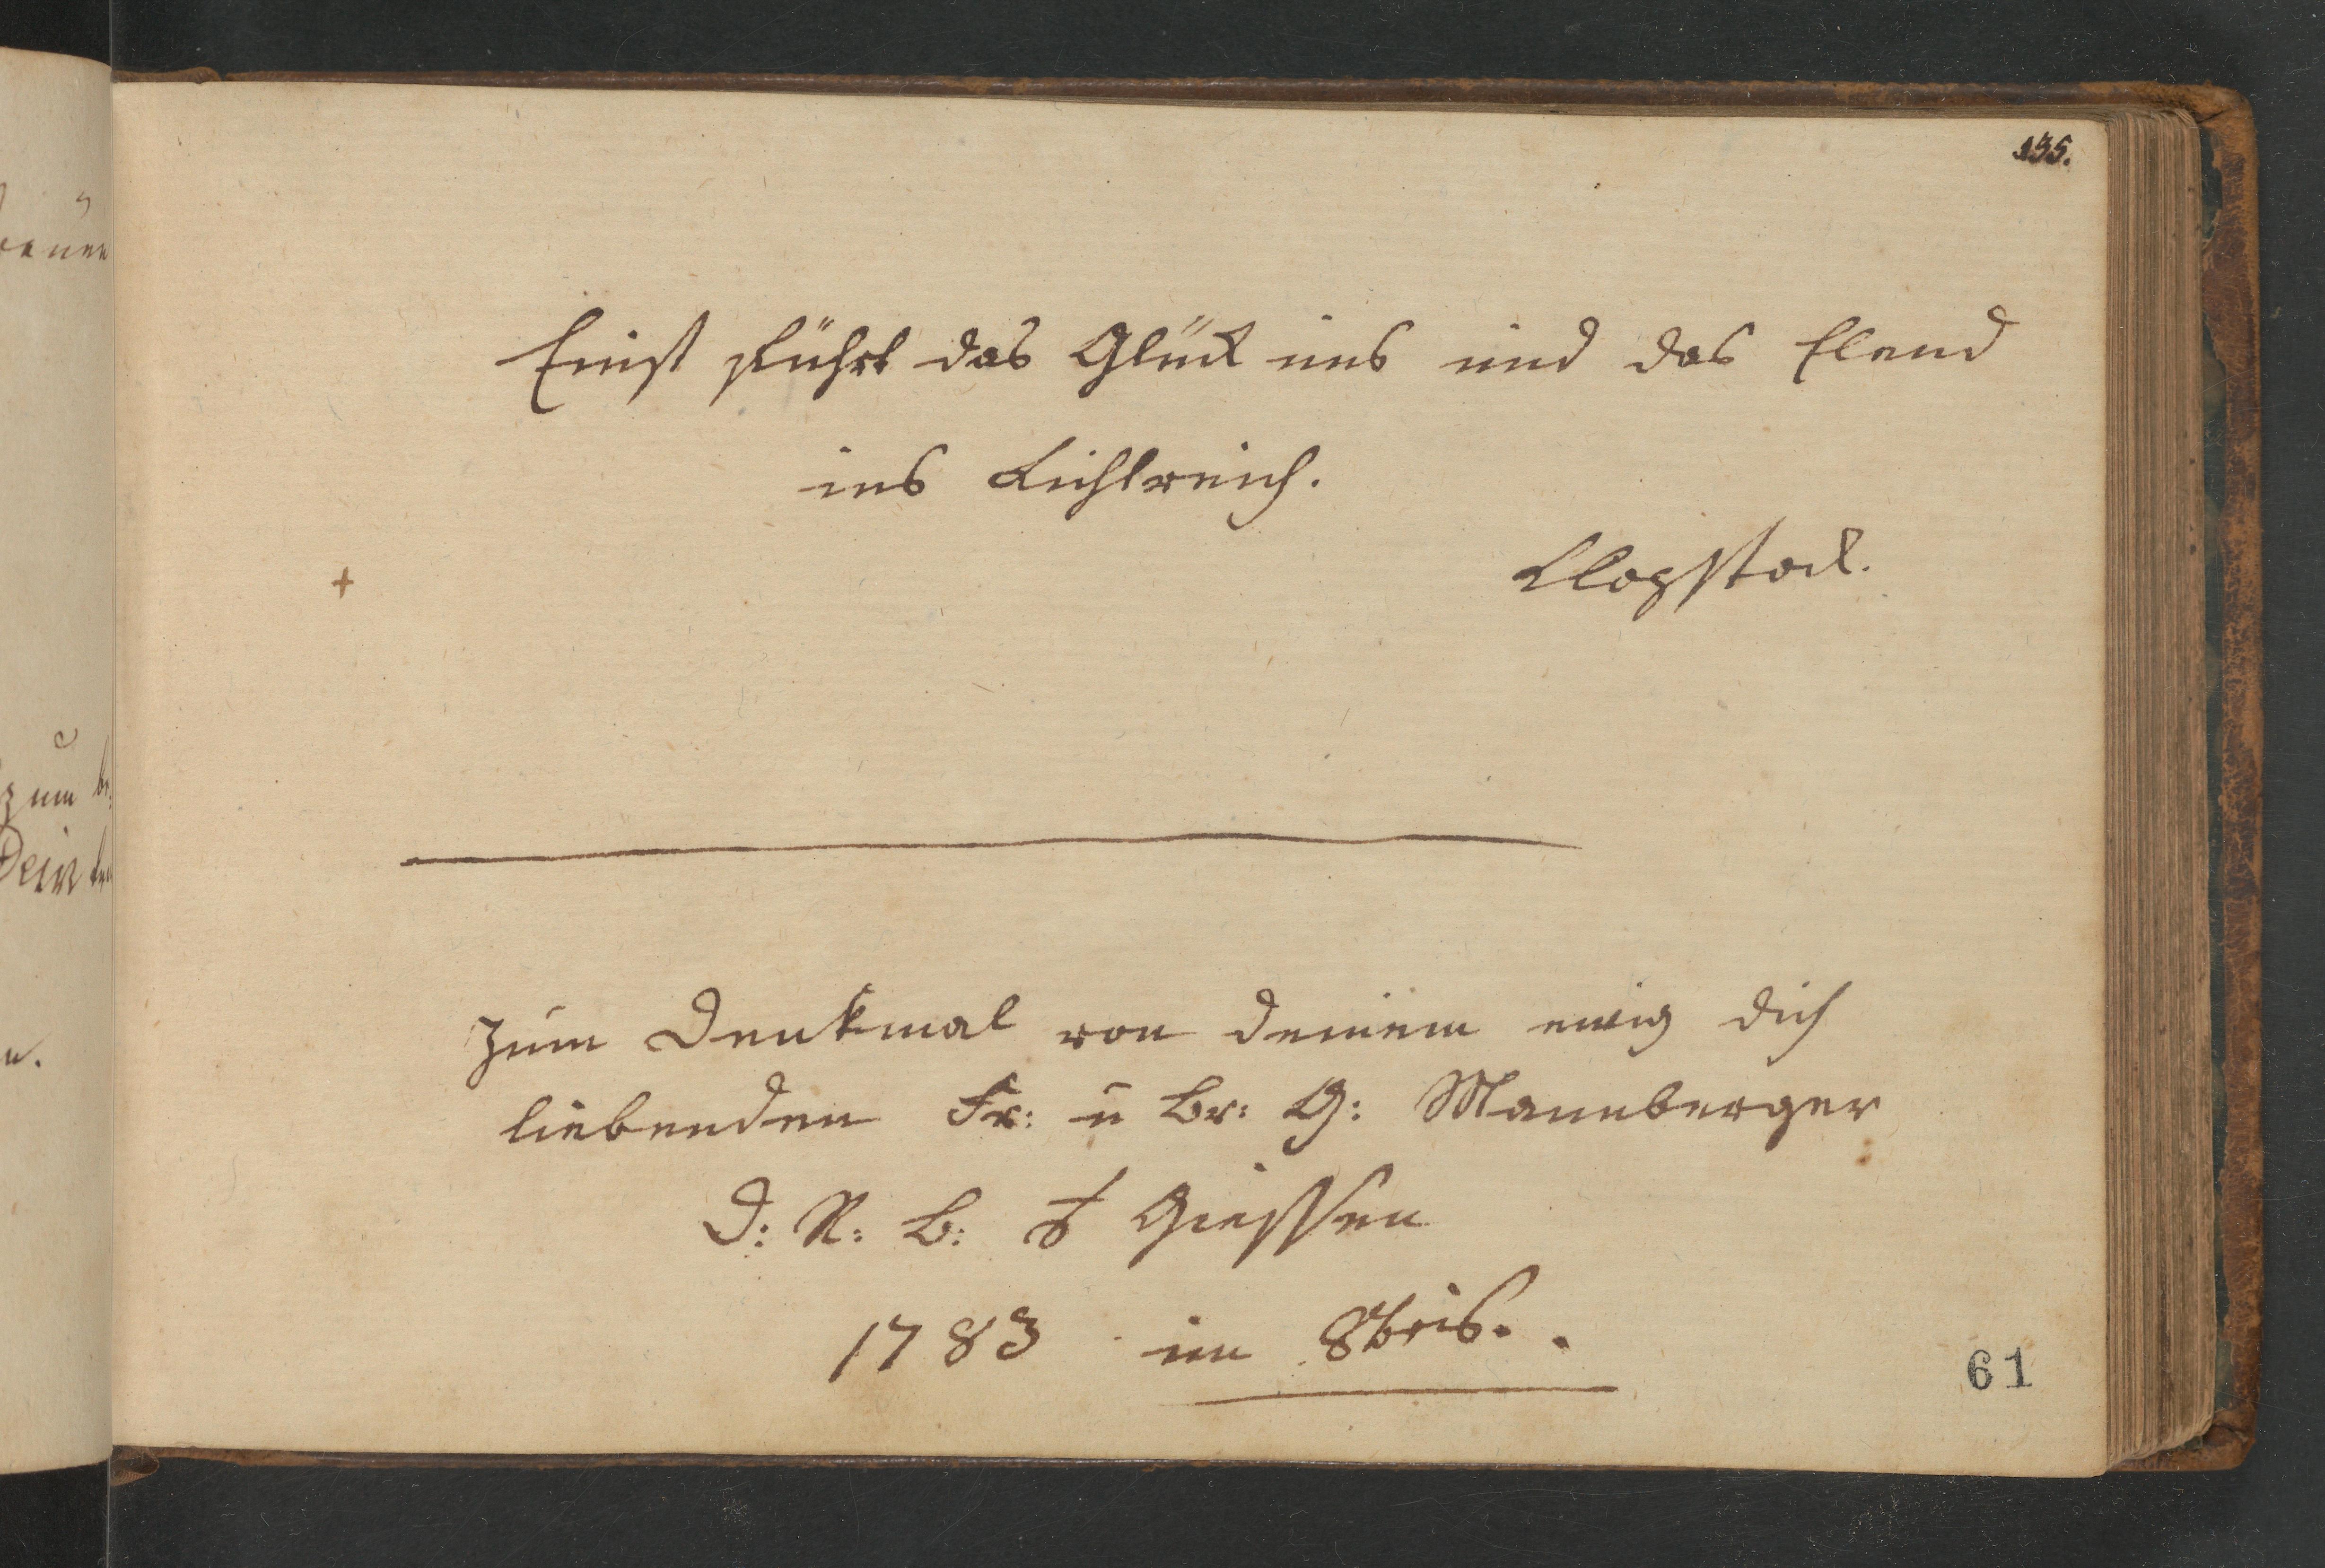 135.
Einst führt das Glück uns und das Elend
ins Lichtreich.
Klopstock.
Zum Denkmal von deinem ewig dich
liebenden Fr: u Br: G: Mannberger
D: R: B:
Giessen
1783 im 8bris..
61